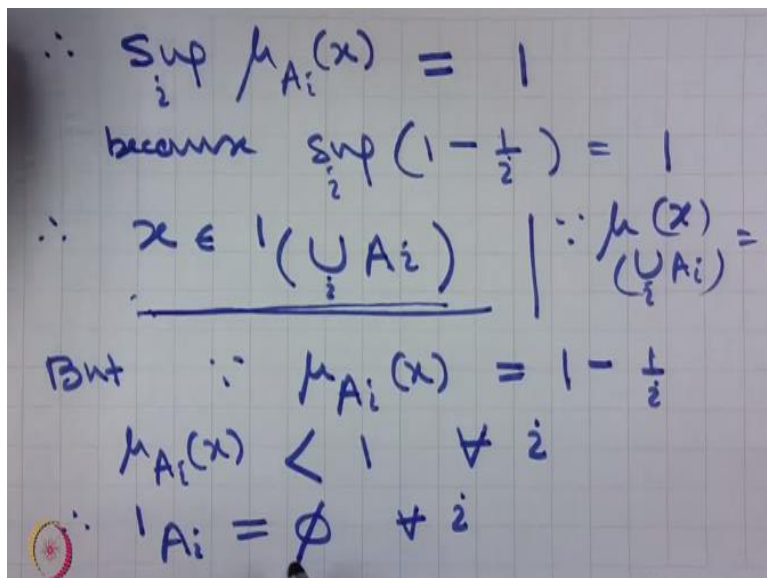 ∴ sup_i μ_{A_i}(x) = 1
because sup_i (1 - 1/i) = 1
∴ x ∈ ¹(∪_i A_i) | ∵ μ_{(∪_i A_i)}(x) =
But ∵ μ_{A_i}(x) = 1 - 1/i
μ_{A_i}(x) < 1 ∀ i
∴ ¹A_i = ϕ ∀ i